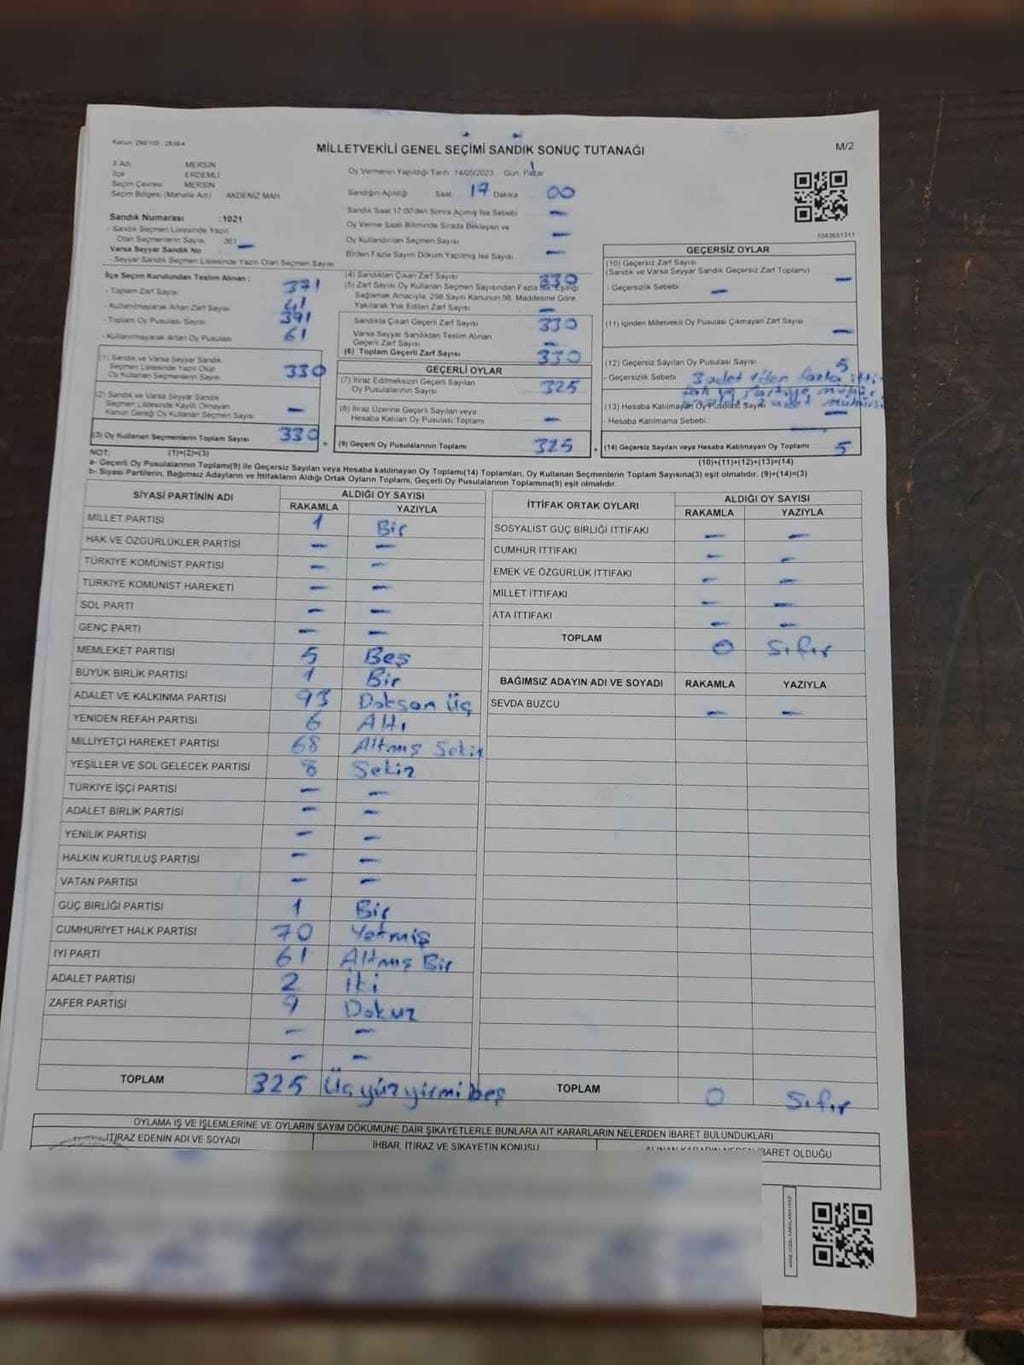 MİLLETVEKİLİ GENEL SEÇİMİ SANDIK SONUÇ TUTANAĞI
M/2
İl Adı : MERSİN
İlçe ERDEMLİ
Seçim Çevresi MERSİN
Seçim Bölgesi (Mahalle Adı) AKDENİZ MAH
Sandık Numarası :1021
- Sandık Seçmen Listesinde Yazılı
Olan Seçmenlerin Sayısı
Varsa Seyyar Sandık No –
- Seyyar Sandık Seçmen Listesinde Yazılı Olan Seçmen Sayısı
İlçe Seçim Kurulundan Teslim Alınan :
- Toplam Zarf Sayısı 371
- Kullanılmayarak Artan Zarf Sayısı
- Toplam Oy Pusulası Sayısı
- Kullanılmayarak Artan Oy Pusulası 61
(1) Sandık ve Varsa Seyyar Sandık
Seçmen Listesinde Yazılı Olup
Oy Kullanan Seçmenlerin Sayısı 330
(2) Sandık ve Varsa Seyyar Sandık
Seçmen Listesinde Kayıtlı Olmayan
Kanun Gereği Oy Kullanan Seçmen Sayısı –
(3) Oy Kullanan Seçmenlerin Toplam Sayısı 330
Oy Vermenin Yapıldığı Tarih 14/05/2023 Gün Pazar
Sandığın Açıldığı Saat 17 Dakika 00
Sandık Saat 17:00'den Sonra Açılmış İse Sebebi –
Oy Verme Saati Bitiminde Sırada Bekleyen ve
Oy Kullandırılan Seçmen Sayısı –
Birden Fazla Sayım Dökümü Yapılmış İse Sayısı –
(4) Sandıktan Çıkan Zarf Sayısı 330
(5) Zarf Sayısı Oy Kullanan Seçmen Sayısından Fazla İse, Eşitliği
Sağlamak Amacıyla, 298 Sayılı Kanunun 98. Maddesine Göre
Yakılarak Yok Edilen Zarf Sayısı –
Sandıkta Çıkan Geçerli Zarf Sayısı 330
Varsa Seyyar Sandıktan Teslim Alınan
Geçerli Zarf Sayısı –
(6) Toplam Geçerli Zarf Sayısı 330
GEÇERLİ OYLAR
(7) İtiraz Edilmeksizin Geçerli Sayılan
Oy Pusulalarının Sayısı 325
(8) İtiraz Üzerine Geçerli Sayılan veya
Hesaba Katılan Oy Pusulası Toplamı –
(9) Geçerli Oy Pusulalarının Toplamı 325
1083651311
GEÇERSİZ OYLAR
(10) Geçersiz Zarf Sayısı
(Sandık ve Varsa Seyyar Sandık Geçersiz Zarf Toplamı) –
- Geçersizlik Sebebi –
(11) İçinden Milletvekili Oy Pusulası Çıkmayan Zarf Sayısı –
(12) Geçersiz Sayılan Oy Pusulası Sayısı 5
- Geçersizlik Sebebi 3 adet 1'den fazla
(13) Hesaba Katılmayan Oy Pusulası Sayısı
- Hesaba Katılmama Sebebi –
(14) Geçersiz Sayılan veya Hesaba Katılmayan Oy Toplamı 5
NOT: (1)+(2)=(3) (10)+(11)+(12)+(13)=(14)
a- Geçerli Oy Pusulalarının Toplamı(9) ile Geçersiz Sayılan veya Hesaba katılmayan Oy Toplamı(14) Toplamları, Oy Kullanan Seçmenlerin Toplam Sayısına(3) eşit olmalıdır. (9)+(14)=(3)
b- Siyasi Partilerin, Bağımsız Adayların ve İttifakların Aldığı Ortak Oyların Toplamı, Geçerli Oy Pusulalarının Toplamına(9) eşit olmalıdır.
SİYASİ PARTİNİN ADI ALDIĞI OY SAYISI
RAKAMLA YAZIYLA
MİLLET PARTİSİ 1 Bir
HAK VE ÖZGÜRLÜKLER PARTİSİ – –
TÜRKİYE KOMÜNİST PARTİSİ – –
TÜRKİYE KOMÜNİST HAREKETİ – –
SOL PARTİ – –
GENÇ PARTİ – –
MEMLEKET PARTİSİ 5 Beş
BÜYÜK BİRLİK PARTİSİ 1 Bir
ADALET VE KALKINMA PARTİSİ 93 Doksan Üç
YENİDEN REFAH PARTİSİ 6 Altı
MİLLİYETÇİ HAREKET PARTİSİ 68 Altmış Sekiz
YEŞİLLER VE SOL GELECEK PARTİSİ 8 Sekiz
TÜRKİYE İŞÇİ PARTİSİ – –
ADALET BİRLİK PARTİSİ – –
YENİLİK PARTİSİ – –
HALKIN KURTULUŞ PARTİSİ – –
VATAN PARTİSİ – –
GÜÇ BİRLİĞİ PARTİSİ 1 Bir
CUMHURİYET HALK PARTİSİ 70 Yetmiş
İYİ PARTİ 61 Altmış Bir
ADALET PARTİSİ 2 İki
ZAFER PARTİSİ 9 Dokuz
– –
– –
TOPLAM 325 Üçyüzyirmibeş
İTTİFAK ORTAK OYLARI ALDIĞI OY SAYISI
RAKAMLA YAZIYLA
SOSYALİST GÜÇ BİRLİĞİ İTTİFAKI – –
CUMHUR İTTİFAKI – –
EMEK VE ÖZGÜRLÜK İTTİFAKI – –
MİLLET İTTİFAKI – –
ATA İTTİFAKI – –
TOPLAM 0 Sıfır
BAĞIMSIZ ADAYIN ADI VE SOYADI RAKAMLA YAZIYLA
SEVDA BUZCU – –
TOPLAM 0 Sıfır
OYLAMA İŞ VE İŞLEMLERİNE VE OYLARIN SAYIM DÖKÜMÜNE DAİR ŞİKAYETLERLE BUNLARA AİT KARARLARIN NELERDEN İBARET BULUNDUKLARI
İTİRAZ EDENİN ADI VE SOYADI
İHBAR, İTİRAZ VE ŞİKAYETİN KONUSU
ALINAN KARARIN NEDEN İBARET OLDUĞU